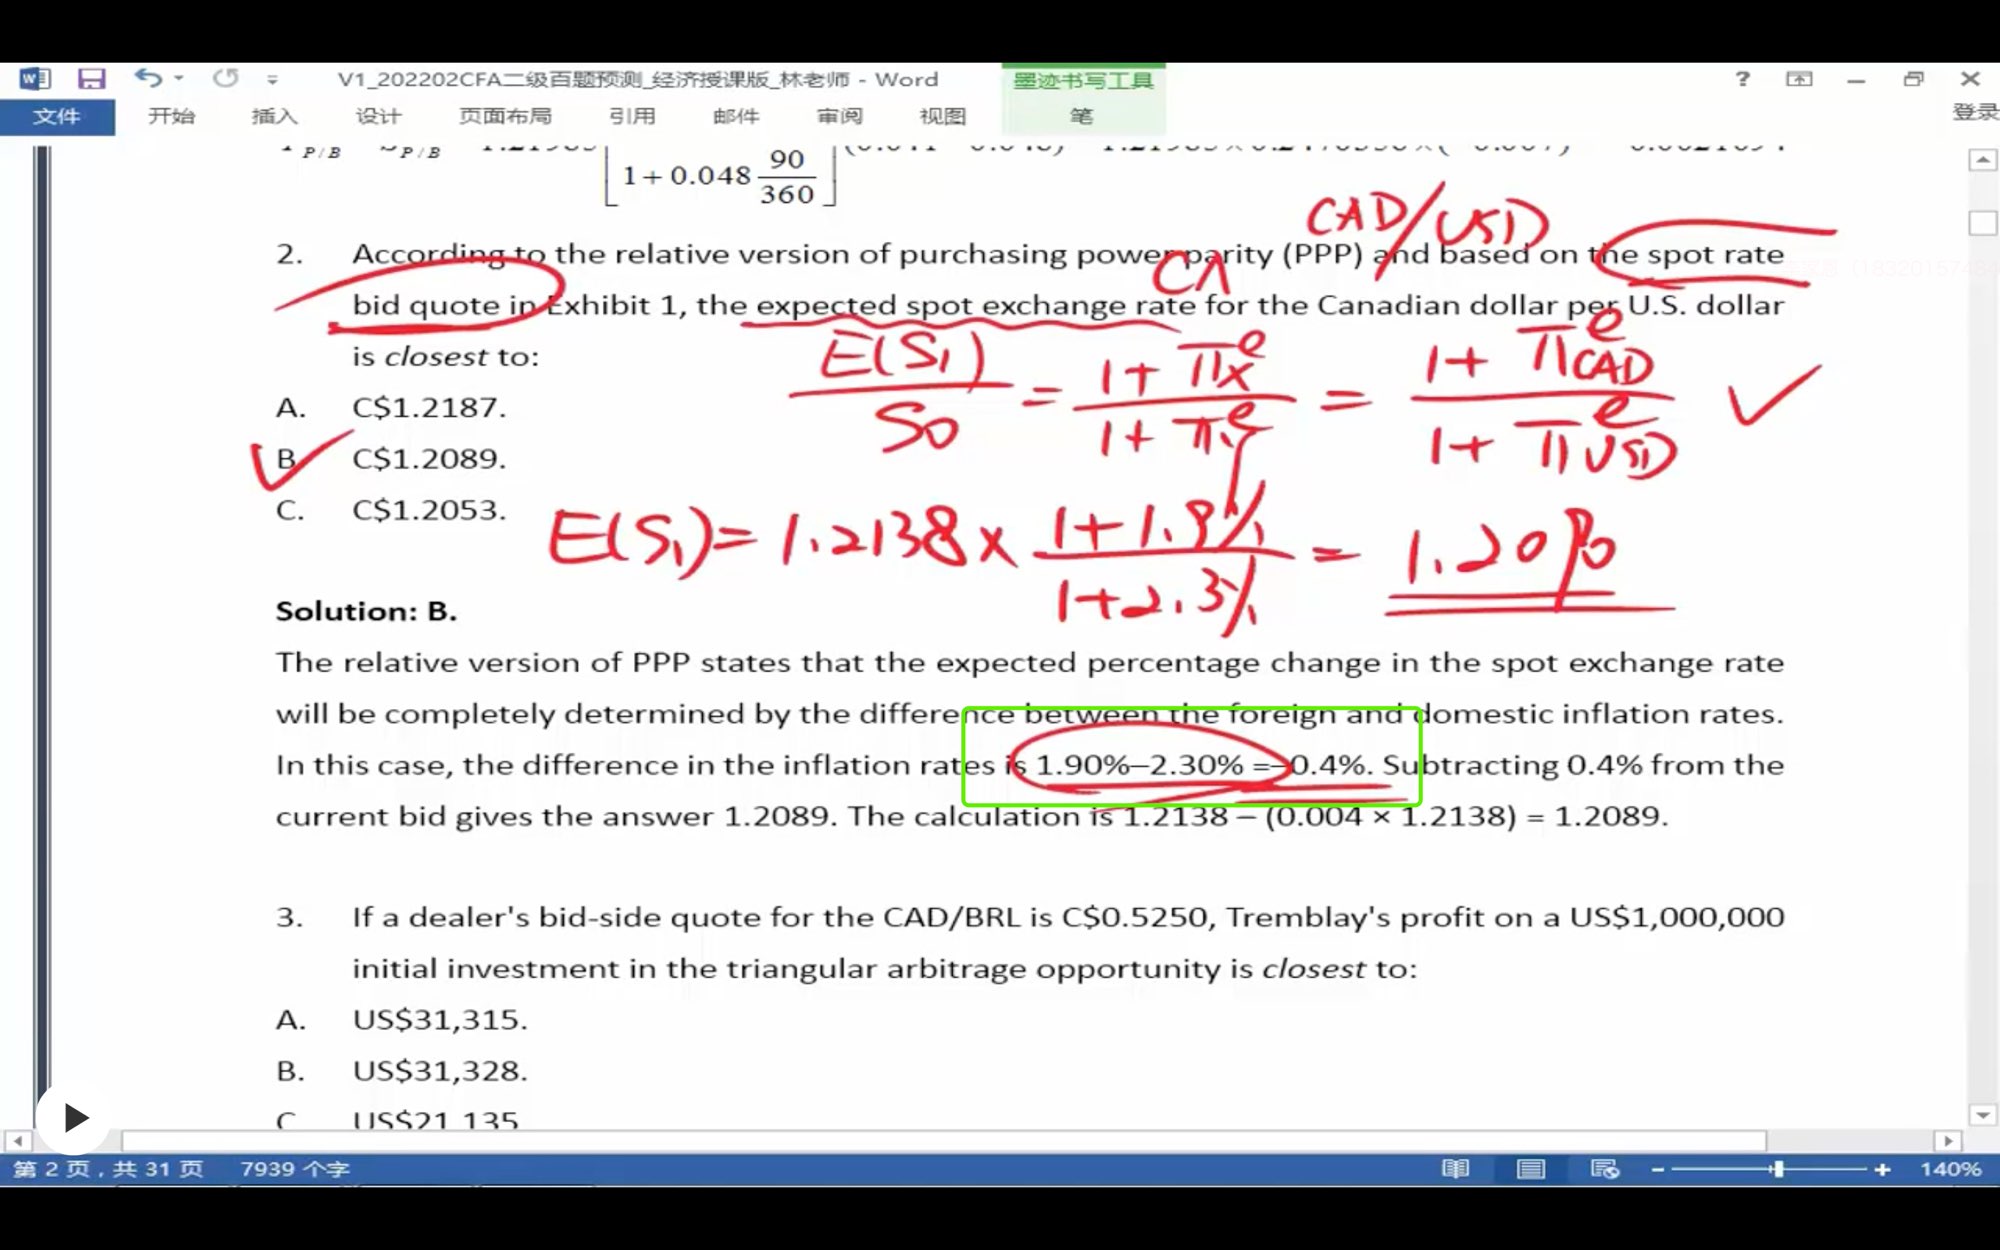 V1_202202CFA二级百题预测_经济授课版_林老师 - Word
墨迹书写工具
?
登录
文件 开始 插入 设计 页面布局 引用 邮件 审阅 视图 笔
P/B P/B
1+0.048 90/360
CAD/USD
2. According to the relative version of purchasing power parity (PPP) and based on the spot rate
CA
bid quote in Exhibit 1, the expected spot exchange rate for the Canadian dollar per U.S. dollar
is closest to:
E(S1)/S0 = 1+πx^e / 1+π^e = 1+π^e CAD / 1+π^e USD
A. C$1.2187.
B. C$1.2089.
C. C$1.2053.
E(S1)= 1.2138 × 1+1.9% / 1+2.3% = 1.20
Solution: B.
The relative version of PPP states that the expected percentage change in the spot exchange rate
will be completely determined by the difference between the foreign and domestic inflation rates.
In this case, the difference in the inflation rates is 1.90%–2.30% =–0.4%. Subtracting 0.4% from the
current bid gives the answer 1.2089. The calculation is 1.2138 – (0.004 × 1.2138) = 1.2089.
3. If a dealer's bid-side quote for the CAD/BRL is C$0.5250, Tremblay's profit on a US$1,000,000
initial investment in the triangular arbitrage opportunity is closest to:
A. US$31,315.
B. US$31,328.
C US$21,135
第 2 页，共 31 页 7939 个字 140%